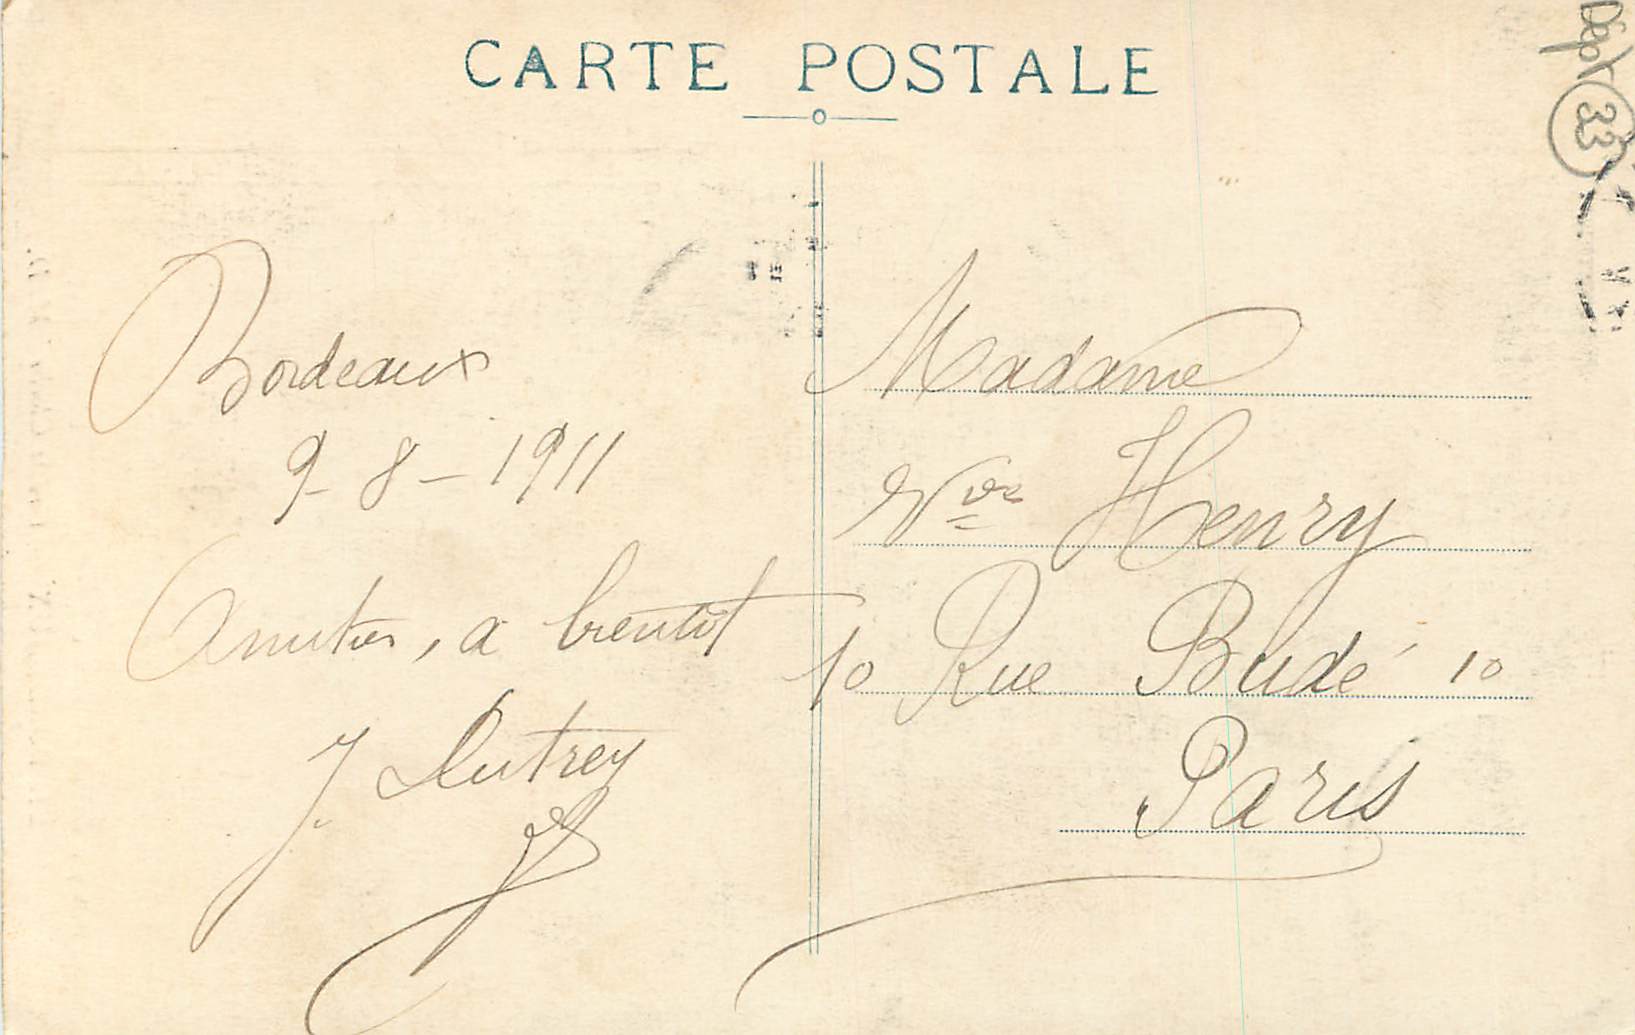 CARTE POSTALE
Dépt 33
Bordeaux
9-8-1911
Amitiés, a bientôt
J. Dutrey
Madame
Vve Henry
10 Rue Budé 10
Paris